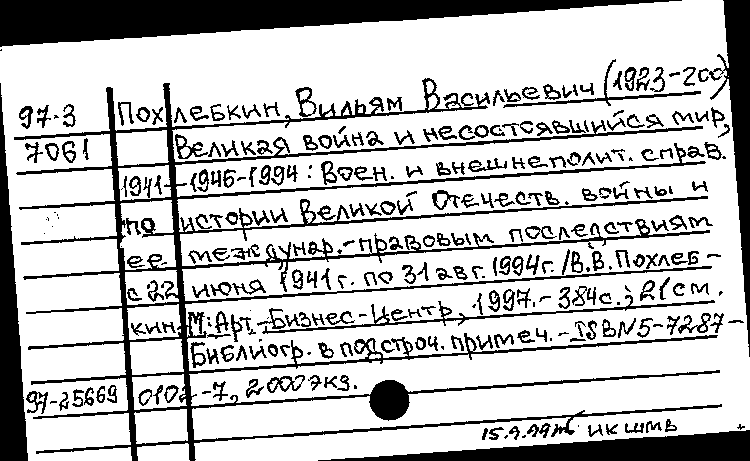 97-3 Похлебкин, Вильям Васильевич (1923-200
7061 Великая война и несостоявшийся мир,
1941-1945-1994: Воен. и внешнеполит. справ.
по истории Великой Отечеств. войны и
ее междунар.-правовым последствиям
с 22 июня 1941г. по 31 авг. 1994г. /В.В. Похлеб-
кин.- М.: Арт.-Бизнес-Центр, 1997.- 384с.; 21см.
Библиогр. в подстроч. примеч.- ISBN 5-7287-
97-25669 0102-7, 2000 экз.
15.9.99 ИКШМБ